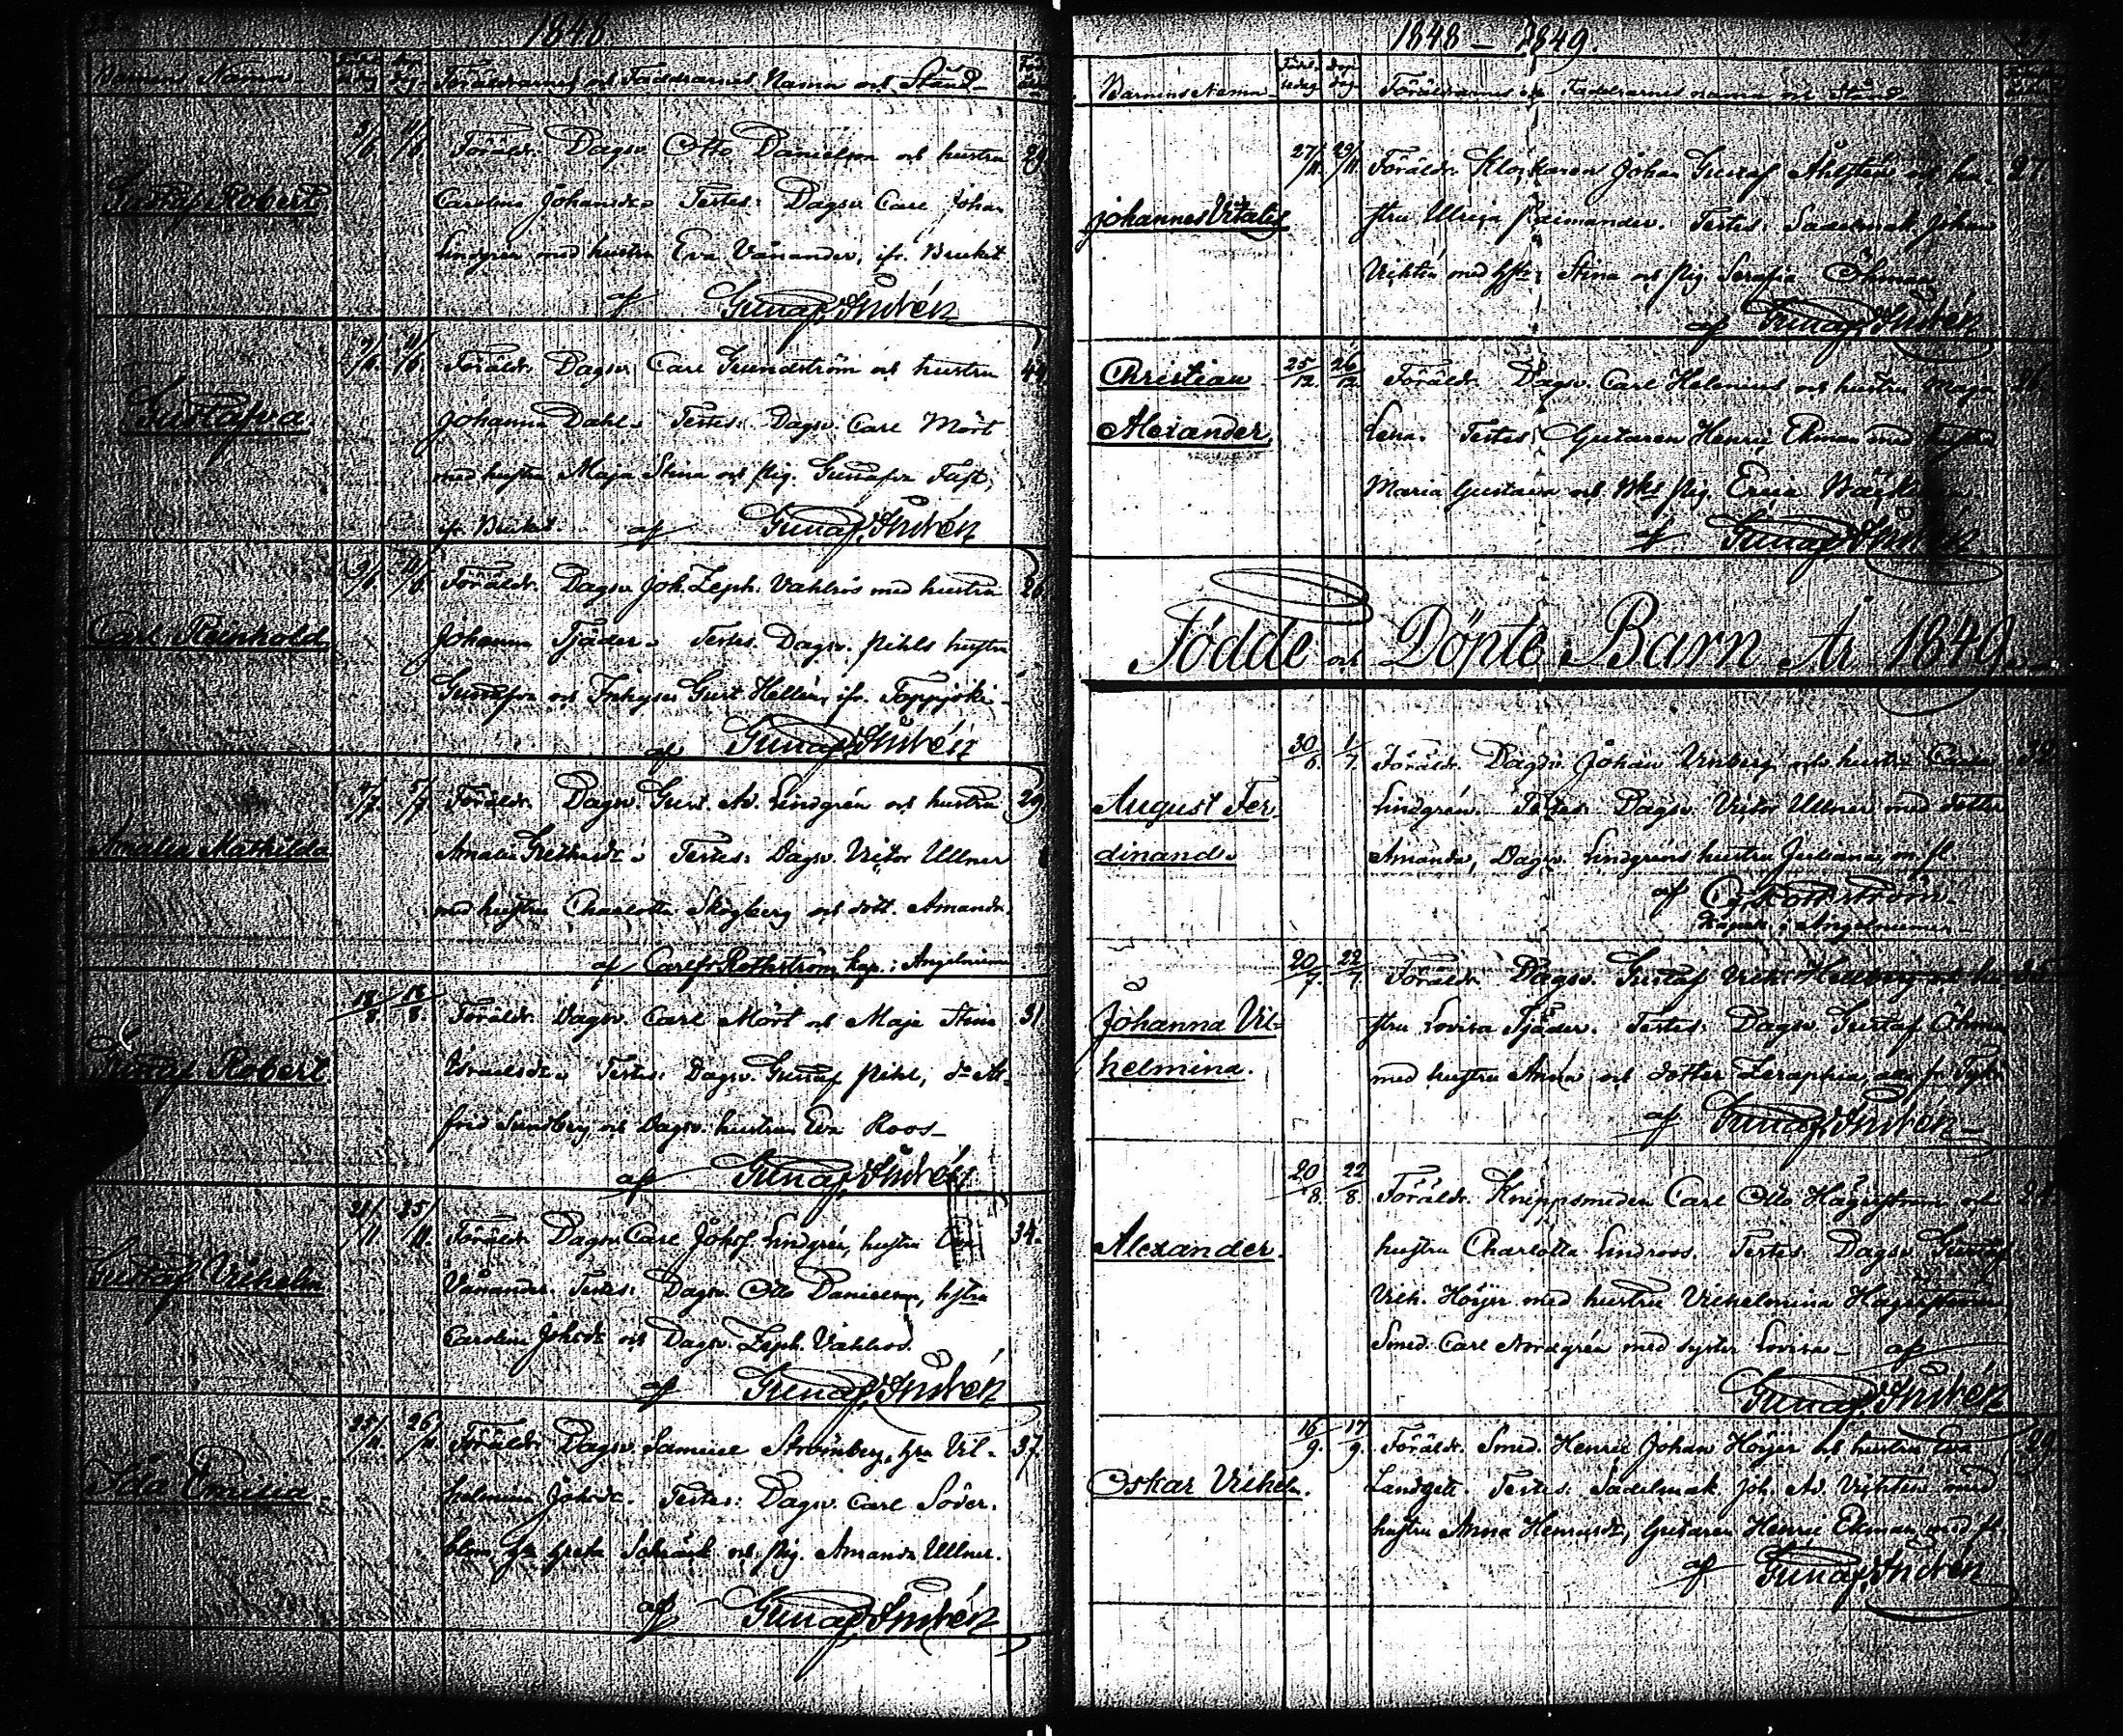 1848.
Barnens Namn. Födelsedag Dopdag Föräldrarnes och Faddrarnes Namn och Stånd
Gustaf Robert
11/6. Föräldr. Dagsv. Otto Danielson och hustru 29.
Carolina Johansdr. Testes: Dagsv. Carl Johan
Lindgrén med hustru Eva Vånander, ifr. Bruket.
af Gustaf Andrén
Gustafva
Föräldr. Dagsv. Carl Grundström och hustru
Johanna Dahl. Testes: Dagsv. Carl Mört
med hustru Maja Stina och pig. Gustafva Fast,
fr. Bruket. af Gustaf Andrén
Carl Reinhold
Föräldr. Dagsv. Joh. Zeph. Vahlros med hustru 26.
Johanna Tjäder. Testes: Dagsv. Pihls hustru
Gustafva och Inhyses Gust. Hellén, ifr. Toppjoki.
af Gustaf Andrén
Amalia Mathilda
5/7. Föräldr. Dagsv. Gust. Ad. Lindgrén och hustru 29
Amalia Testes: Dagsv. Victor Ullner
med hustru Charlotta Skogberg och dott. Amanda.
af Carl Fr. Rothström kap. i Angelniemi
Gustaf Robert.
18/8. 18/8. Föräldr. Dagsv. Carl Mört och Maja Stina 31.
Israelsdr. Testes: Dagsv. Gustaf Pihl, do Al-
frid Sundberg och Dagsv. hustrun Eva Roos
af Gustaf Andrén
Gustaf Vilhelm
21/11. 25/11. Föräldr. Dagsv. Carl Johs. Lindgrén, hustru Eva 34.
Vånander. Testes: Dagsv. Otto Danielson, hstru
Carolina Johsdr. och Dagsv. Zeph. Vahlros.
af Gustaf Andrén
Ida Emilia
25/11. 26/11. Föräldr. Dagsv. Samuel Strömberg, hru Vil- 37.
helmina Johsdr. Testes: Dagsv. Carl Söder-
blom, hru Greta och pig. Amanda Ullner.
af Gustaf Andrén
1848 — 1849.
Barnens Namn Födelsedag Dopdag Föräldrarnes och Faddrarnes namn och Stånd
Johannes Vitalis
27/11. 29/11. Föräldr. Klockaren Johan Gustaf Åhlstén och hu- 27.
stru Ulrica Testes: Sadelmak. Johan
Viktén med hstr. Stina och pig. Serafia Öhman
af Gustaf Andrén
Christian
Alexander.
25/12. 26/12. Föräldr. Dagsv. Carl Helenius och hustru Maja
Lena. Testes: Gjutaren Henric Ekman med hustru
Maria Gustava och pig. Erica
af Gustaf Andrén
Födde och Döpte Barn År 1849.
August Fer-
dinand.
30/6. 1/7. Föräldr. Dagsv. Johan Vinberg och hustru Carolina
Lindgrén. Testes: Dagsv. Victor Ullner med dotter
Amanda, Dagsv. Lindgréns hustru Juliana, m. fl.
af C. F. Rothström.
Kapell. i Angelniemi
Johanna Vil-
helmina.
20/7. 22/7. Föräldr. Dagsv. Gustaf Vilh. Hellberg och hu-
stru Lovisa Tjäder. Testes: Dagsv. Gustaf Öhman
med hustru Anna och dotter Zeraphia, alla fr. Tykö
af Gustaf Andrén
Alexander.
20/8. 22/8. Föräldr. Knippsmeden Carl Otto Hägerström och
hustru Charlotta Lindroos. Testes: Dagsv. Gustaf
Vilh. Höijer med hustru Vilhelmina Hägerström,
Smed. Carl Nordgrén med syster Lovisa. af
Gustaf Andrén
Oskar Vilhelm.
16/9. 17/9. Föräldr. Smed. Henric Johan Höijer och hustru Eva 29.
Landgett. Testes: Sadelmak. Joh. Ad. Viktén med
hustru Anna Henricsdr., Gjutaren Henric Ekman, med fl.
af Gustaf Andrén